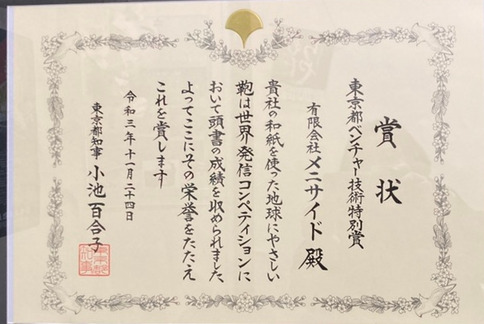 賞状
東京都ベンチャー技術特別賞
有限会社メニサイド殿
貴社の和紙を使った地球にやさしい
鞄は世界発信コンペティションに
おいて頭書の成績を収められました
よってここにその栄誉をたたえ
これを賞します
令和三年十一月二十四日
東京都知事 小池百合子